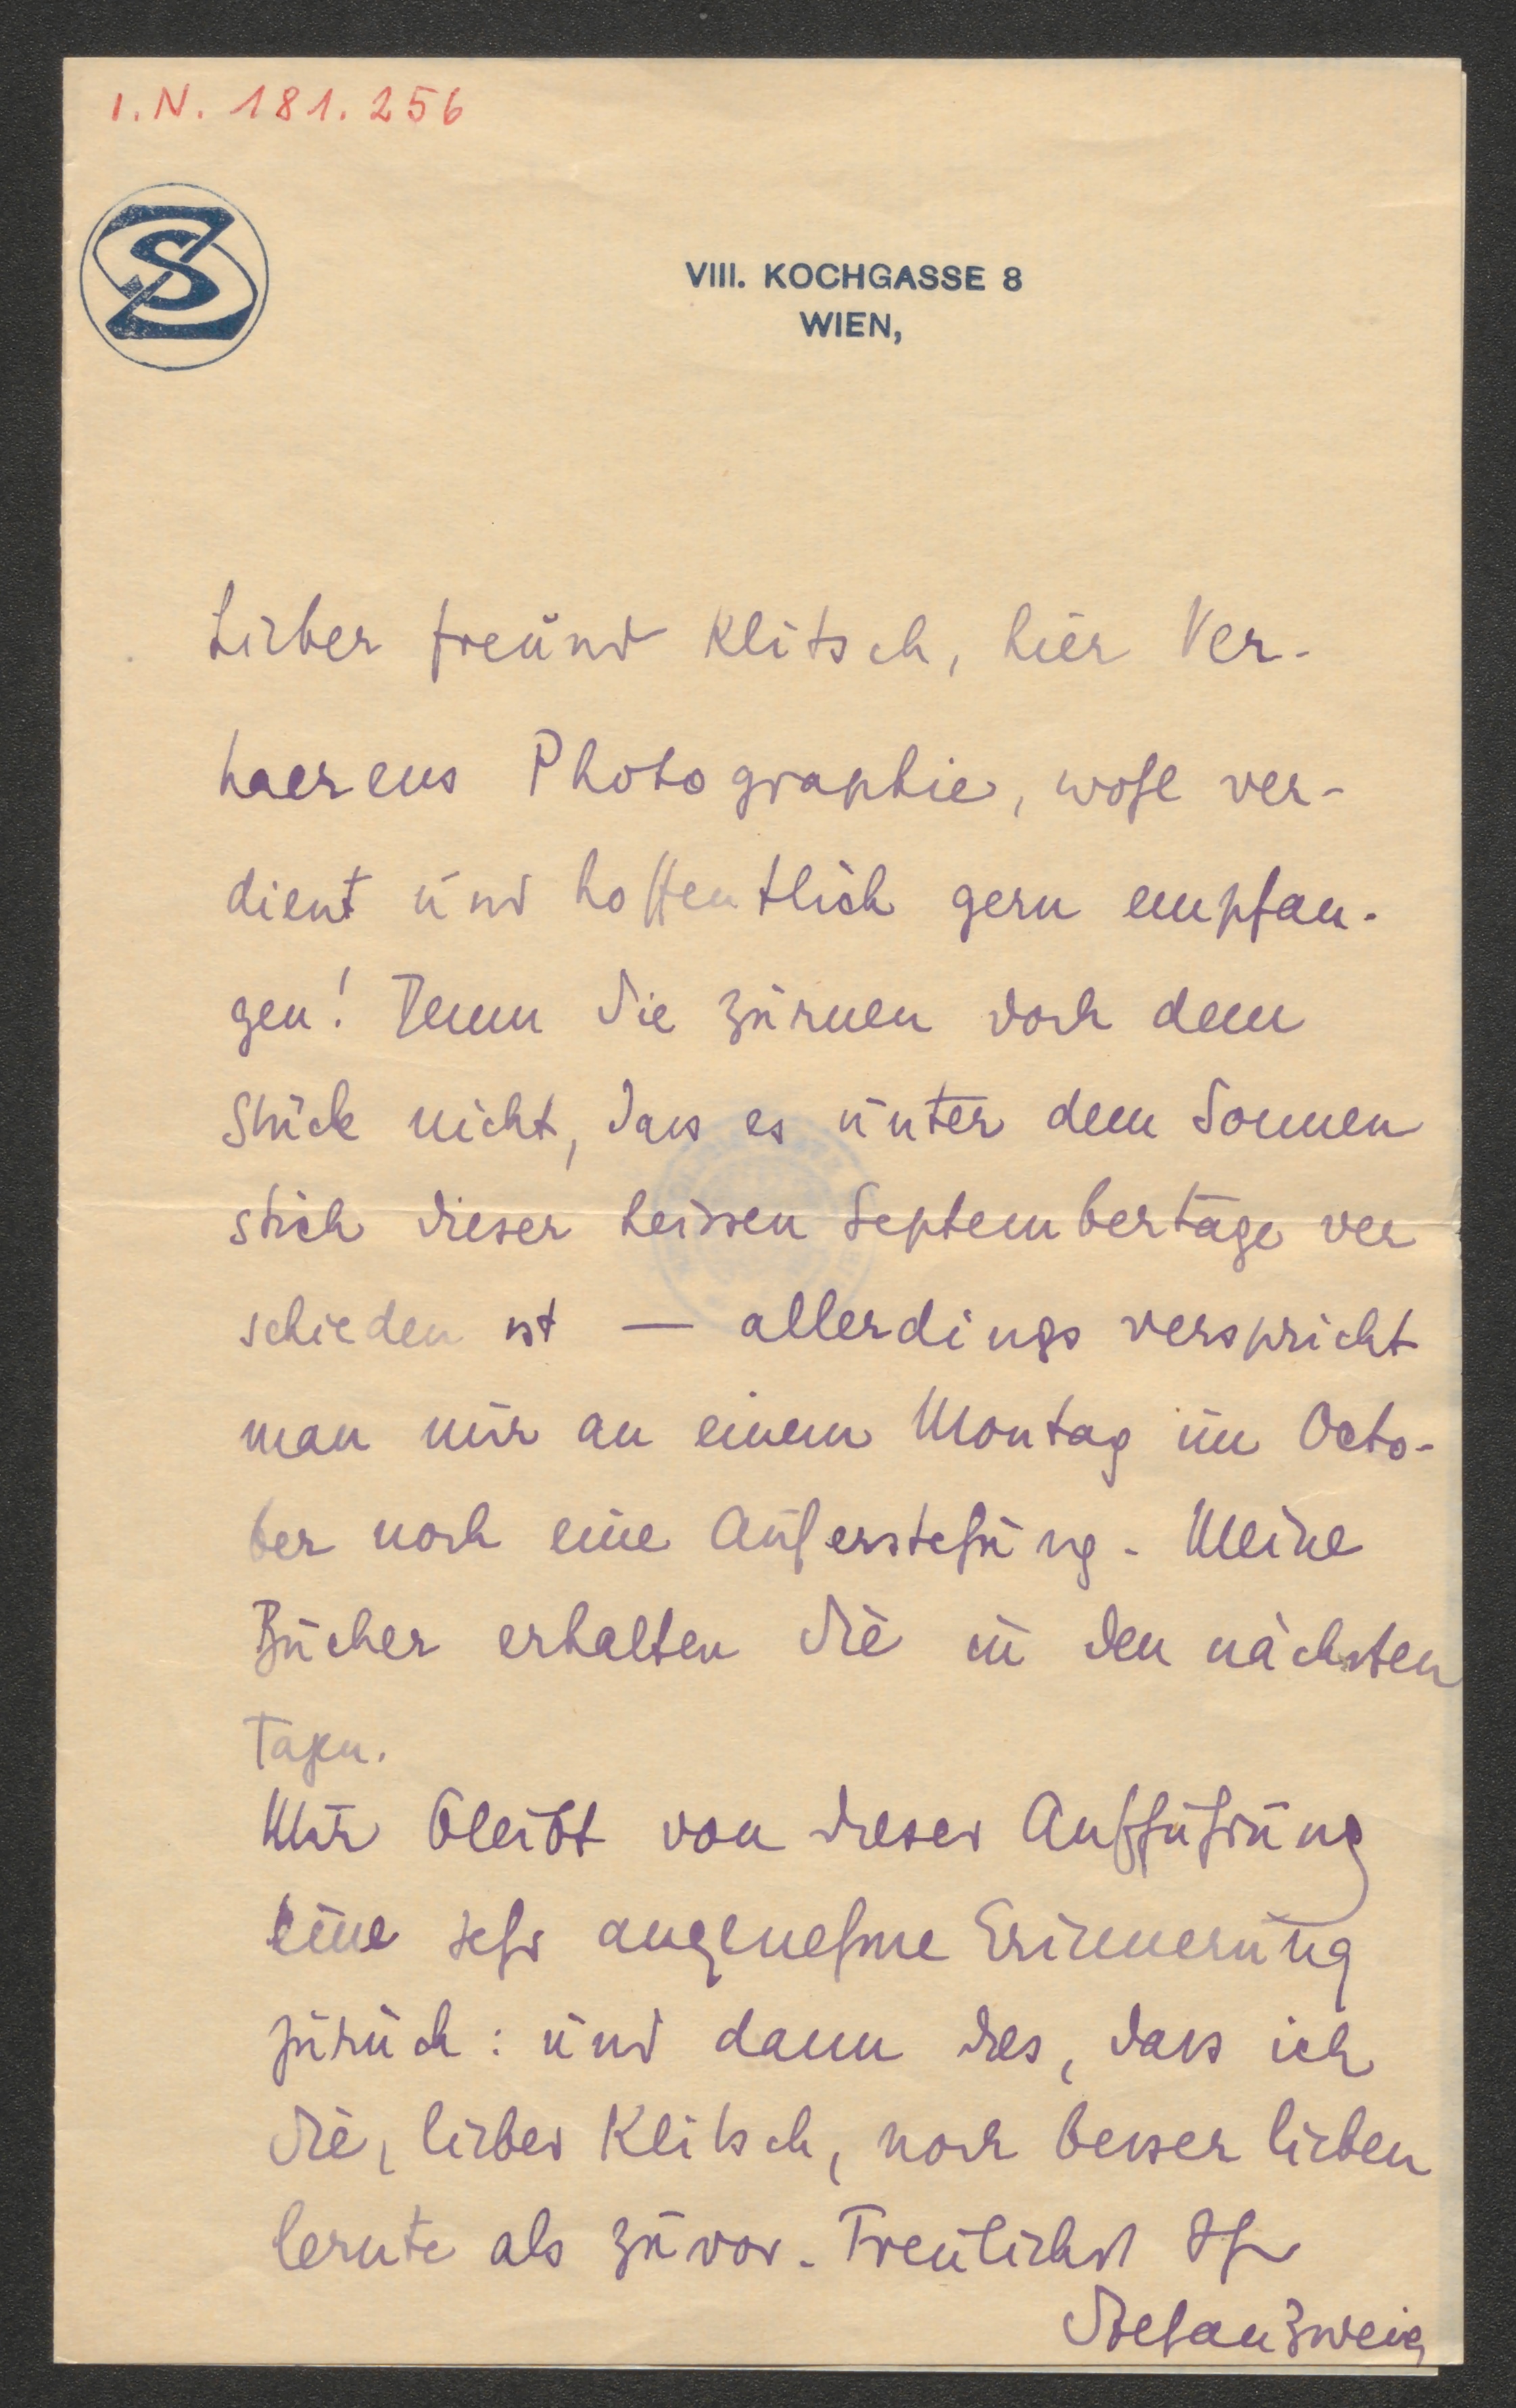 I.N. 181.256
SZ
VIII. KOCHGASSE 8
WIEN,
Lieber Freund Klitsch, hier Ver-
haerens Photographie, wohl ver-
dient und hoffentlich gern empfan-
gen! Denn Sie zürnen doch dem
Stück nicht, dass es unter dem Sonnen
stich dieser heissen Septembertage ver
schieden ist — allerdings verspricht
man mir an einem Montag im Octo-
ber noch eine Auferstehung. Meine
Bücher erhalten Sie in den nächsten
Tagen.
Mir bleibt von dieser Aufführung
eine sehr angenehme Erinnerung
zurück: und dann dies, dass ich
Sie, lieber Klitsch, noch besser lieben
lernte als zuvor. Treulichst Ihr
Stefan Zweig